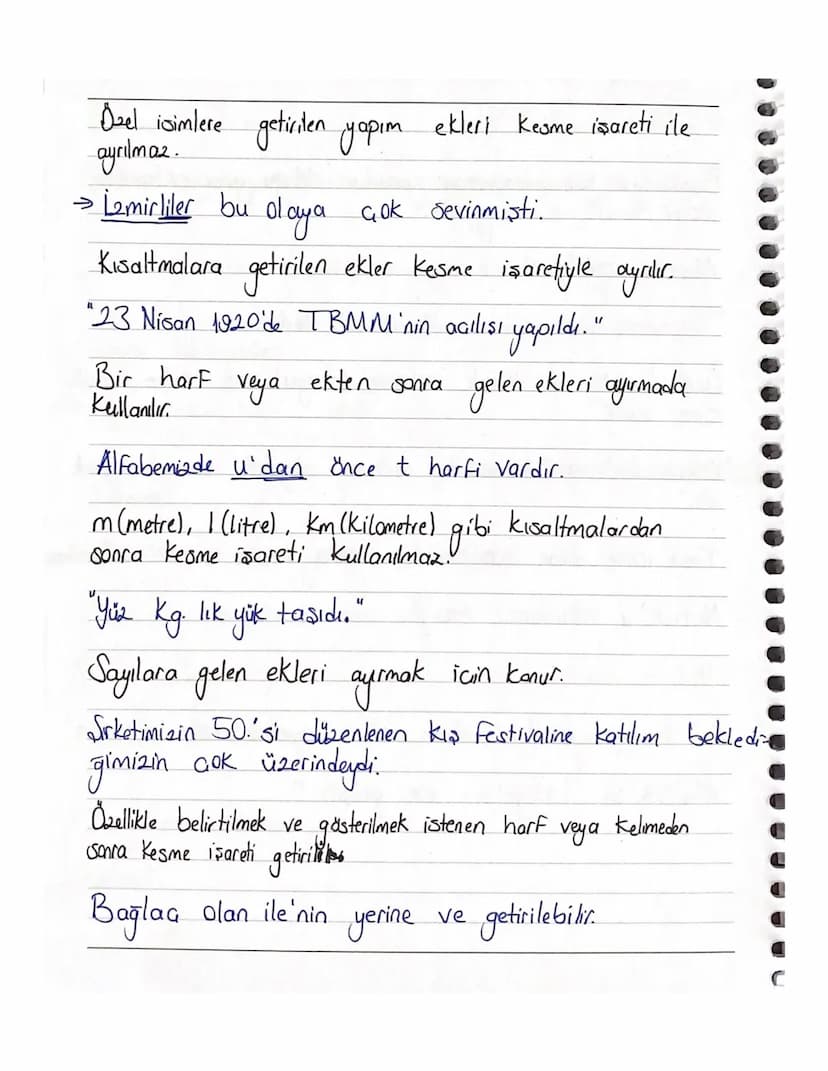 Özel isimlere getirilen yapım ekleri kesme işareti ile
ayrılmaz.
→ İzmirliler bu olaya çok sevinmişti.
Kısaltmalara getirilen ekler kesme işaretiyle ayrılır.
"23 Nisan 1920'de TBMM'nin açılışı yapıldı."
Bir harf veya ekten sonra gelen ekleri ayırmada
kullanılır.
Alfabemizde u'dan önce t harfi vardır.
m(metre), l(litre), km(kilometre) gibi kısaltmalardan
sonra kesme işareti kullanılmaz.
"Yüz kg. lık yük taşıdı."
Sayılara gelen ekleri ayırmak için konur.
Şirketimizin 50.'si düzenlenen kış festivaline katılım bekledi-
ğimizin çok üzerindeydi.
Özellikle belirtilmek ve gösterilmek istenen harf veya kelimeden
sonra kesme işareti
Bağlaç olan ile'nin yerine ve getirilebilir.